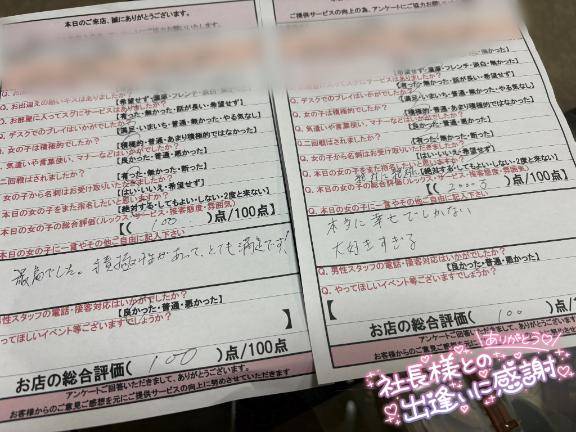 本日のご来店、誠にありがとうございます。
アンケートにご協力お願いいたします。
Q. お出迎えの熱いキスはありましたか?
【希望せず・濃厚・フレンチ・淡白・無かった】
Q. お部屋に入ってスグにサービスはありましたか?
【有った・無かった・話が長い・希望せず】
Q. デスクでのプレイはいかがでしたか?
【満足・いまいち・普通・無かった・やる気なし】
Q. 女の子は積極的でしたか?
【積極的・普通・あまり積極的ではなかった】
Q. 気遣いや言葉使い、マナーなどはいかがでしたか?
【良かった・普通・悪かった】
二回戦はされましたか?
【有った・無かった・断った】
女の子から名刺はお受け取りいただきましたか?
【はい・いいえ・希望せず】
本日の女の子をまた指名したいと思いますか?
【絶対する・してもよい・しない・2度と来ない】
本日の女の子の総合評価(ルックス・サービス・接客態度・雰囲気)
【( 100 )点/100点】
本日の女の子に一言やその他ご自由に記入下さい
最高でした。積極性があって、とても満足です!
男性スタッフの電話・接客対応はいかがでしたか?
【良かった・普通・悪かった】
やってほしいイベント等ございますでしょうか?
】
お店の総合評価( 100 )点/100点
アンケートご回答いただきまして、ありがとうございます。
お客様からのご意見ご感想を元にご提供サービスの向上に努めさせていただきます
ご提供サービスの向上の為、アンケートにご協力お願い
無かった】
【希望せず・濃厚・フレンチ・淡白・無かった】
【有った・無かった・話が長い・希望せず】
Q. デスクでのプレイはいかがでしたか?
【満足・いまいち・普通・無かった・やる気なし】
Q. 女の子は積極的でしたか?
【積極的・普通・あまり積極的ではなかった】
Q. 気遣いや言葉使い、マナーなどはいかがでしたか?
【良かった・普通・悪かった】
Q. 二回戦はされましたか?
【有った・無かった・断った】
Q. 女の子から名刺はお受け取りいただきましたか?
【はい・いいえ・希望せず】
Q. 本日の女の子をまた指名したいと思いますか?
【絶対する・してもよい・しない・2度と来ない】
Q. 本日の女の子の総合評価(ルックス・サービス・接客態度・雰囲気)
【( 2000 )点/100点】
Q. 本日の女の子に一言やその他ご自由に記入下さい
本当に幸せでしかない
大好きすぎる
Q. 男性スタッフの電話・接客対応はいかがでしたか?
【良かった・普通・悪かった】
Q. やってほしいイベント等ございますでしょうか?
【
お店の総合評価( 100 )点/100点
アンケートご回答いただきまして、ありがとう
お客様からのご意見ご感想を元に
ありがとう♡
社長様との
出逢いに感謝